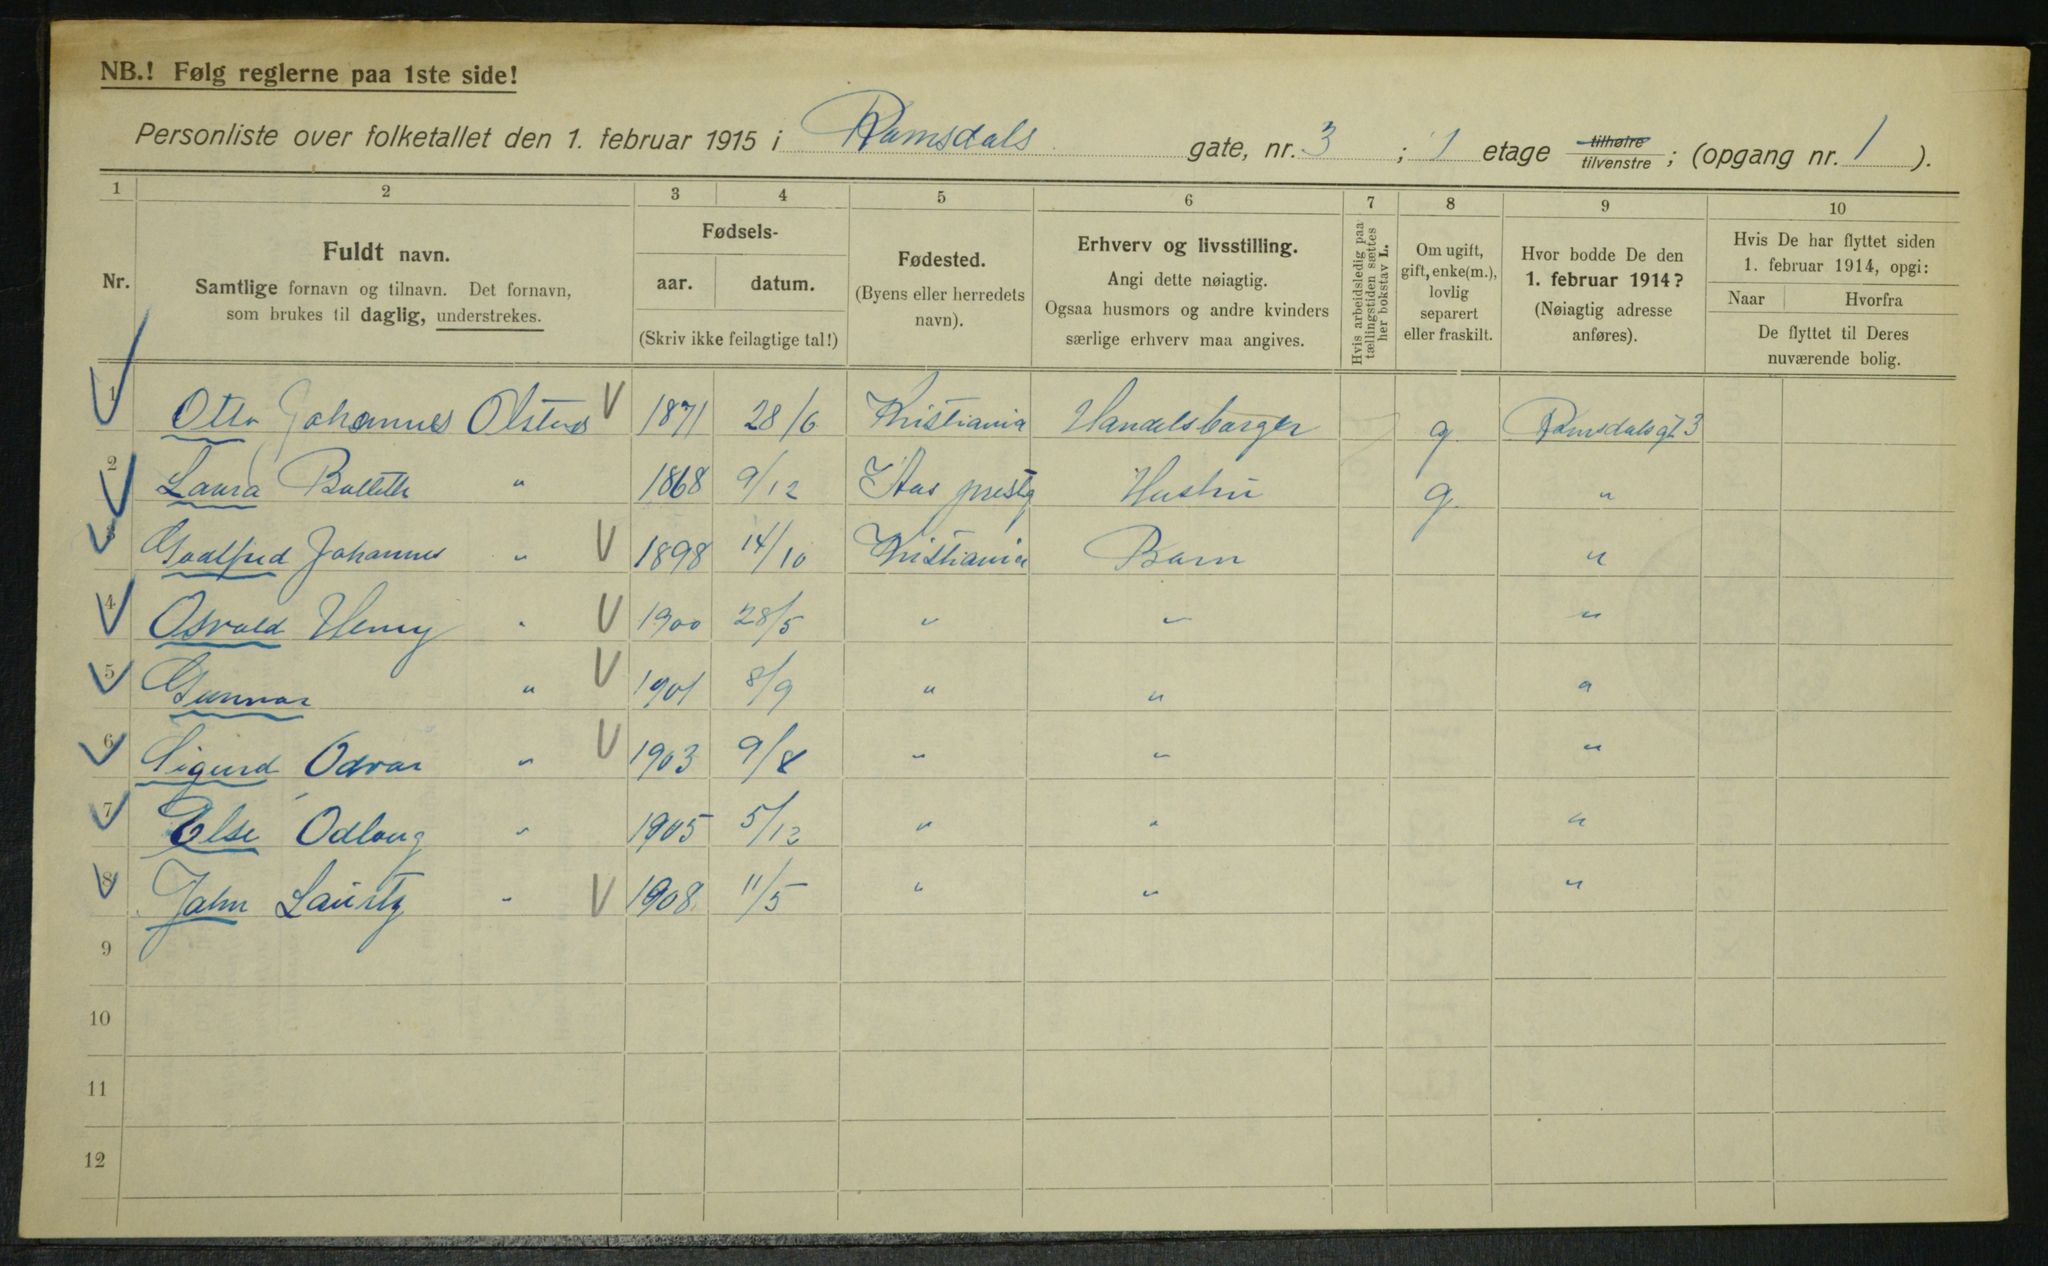 NB.! Følg reglerne paa 1ste side!
Personliste over folketallet den 1. februar 1915 i Ramsdals gate, nr. 3 ; 1 etage tilhøire tilvenstre ; (opgang nr. 1 ).
1 2 3 4 5 6 7 8 9 10
Nr.
Fuldt navn.
Samtlige fornavn og tilnavn. Det fornavn,
som brukes til daglig, understrekes.
Fødsels-
aar. datum.
(Skriv ikke feilagtige tal!)
Fødested.
(Byens eller herredets
navn).
Erhverv og livsstilling.
Angi dette nøiagtig.
Ogsaa husmors og andre kvinders
særlige erhverv maa angives.
Hvis arbeidsledig paa
tællingstiden sættes
her bokstav L.
Om ugift,
gift, enke(m.),
lovlig
separert
eller fraskilt.
Hvor bodde De den
1. februar 1914?
(Nøiagtig adresse
anføres).
Hvis De har flyttet siden
1. februar 1914, opgi:
Naar Hvorfra
De flyttet til Deres
nuværende bolig.
1 Otto Johannes Olstad 1871 28/6 Kristiania Handelsborger g Ramsdalsgt 3
2 Laura " 1868 9/12 Aas prestg Hustru g "
3 Goodfred Johannes " 1898 14/10 Kristiania Barn "
4 Osvald Henry " 1900 28/5 " " "
5 Gunnar " 1901 8/9 " " "
6 Sigurd Odvar " 1903 9/8 " " "
7 Else Odlaug " 1905 5/12 " " "
8 John Lauritz " 1908 11/5 " " "
9
10
11
12